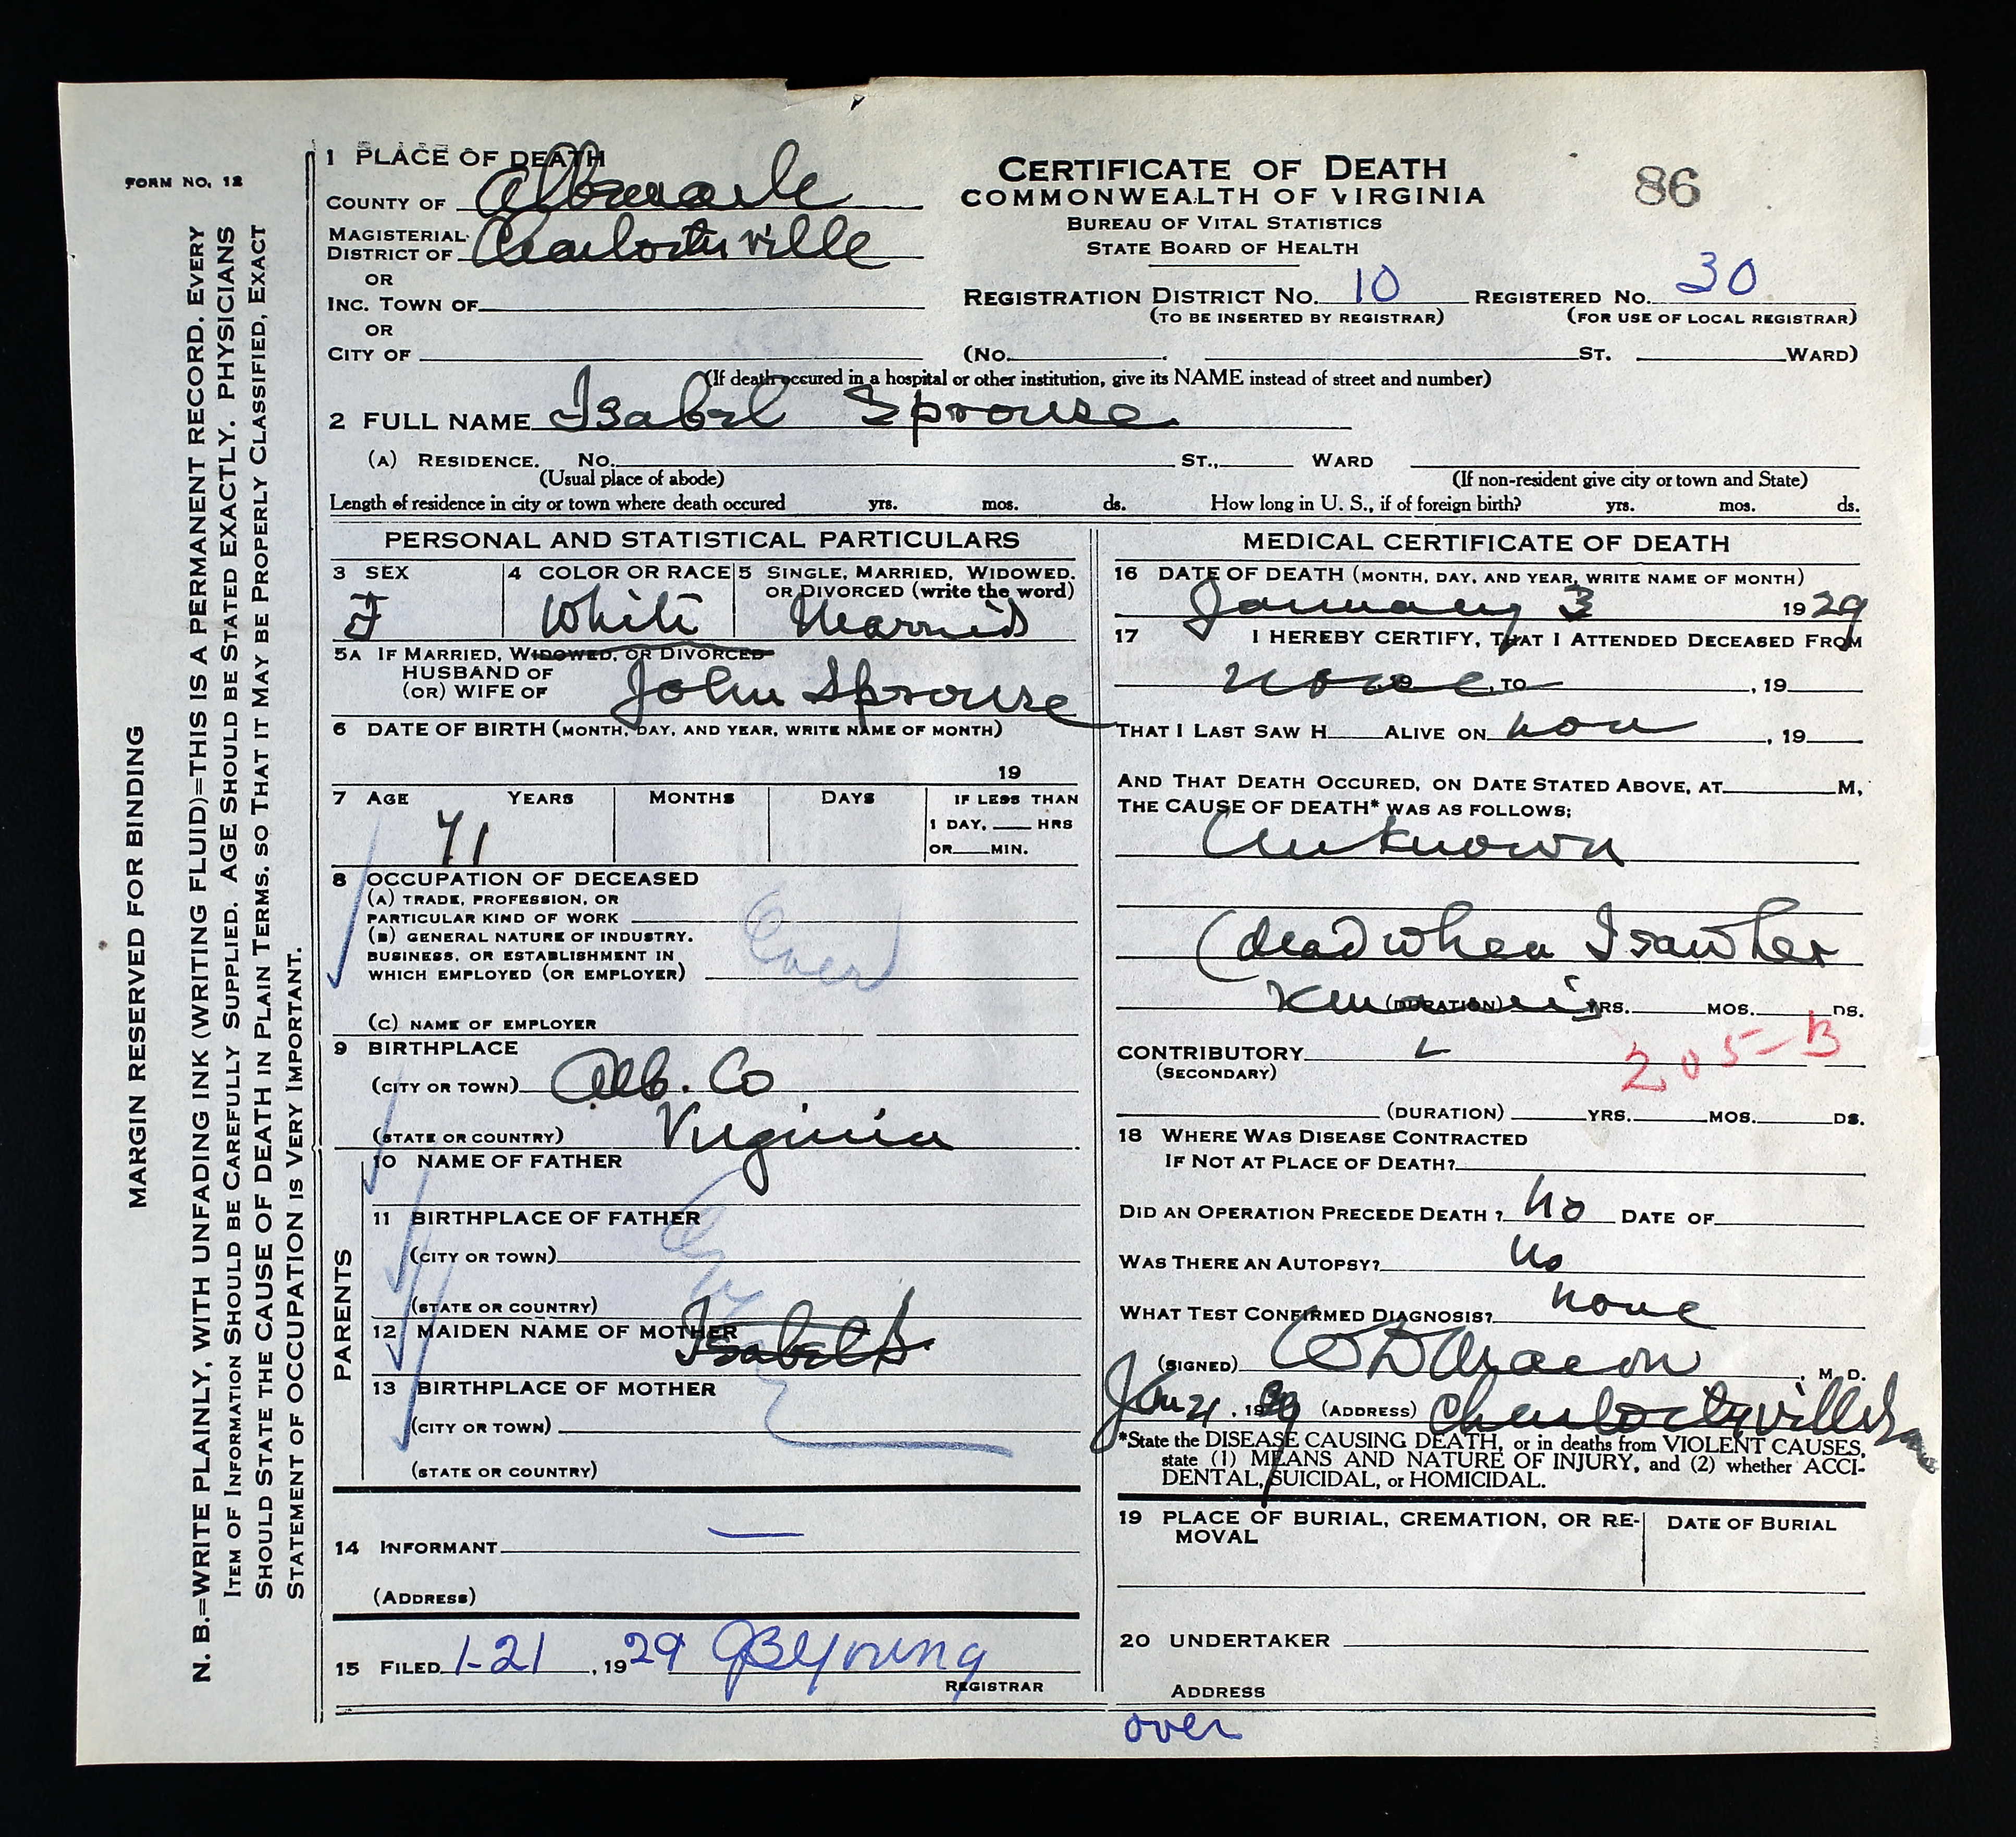 FORM NO. 12
MARGIN RESERVED FOR BINDING
N. B.=WRITE PLAINLY, WITH UNFADING INK (WRITING FLUID)=THIS IS A PERMANENT RECORD. EVERY
ITEM OF INFORMATION SHOULD BE CAREFULLY SUPPLIED. AGE SHOULD BE STATED EXACTLY. PHYSICIANS
SHOULD STATE THE CAUSE OF DEATH IN PLAIN TERMS. SO THAT IT MAY BE PROPERLY CLASSIFIED, EXACT
STATEMENT OF OCCUPATION IS VERY IMPORTANT.
1 PLACE OF DEATH
COUNTY OF Albemarle
MAGISTERIAL DISTRICT OF Charlottesville
OR
INC. TOWN OF
OR
CITY OF
CERTIFICATE OF DEATH
COMMONWEALTH OF VIRGINIA
BUREAU OF VITAL STATISTICS
STATE BOARD OF HEALTH
86
REGISTRATION DISTRICT NO. 10 REGISTERED NO. 30
(TO BE INSERTED BY REGISTRAR) (FOR USE OF LOCAL REGISTRAR)
(NO. ST. WARD)
(If death occured in a hospital or other institution, give its NAME instead of street and number)
2 FULL NAME Isabel Sprouse
(A) RESIDENCE. NO. ST., WARD
(Usual place of abode) (If non-resident give city or town and State)
Length of residence in city or town where death occured yrs. mos. ds. How long in U. S., if of foreign birth? yrs. mos. ds.
PERSONAL AND STATISTICAL PARTICULARS
3 SEX
F
4 COLOR OR RACE
White
5 SINGLE, MARRIED, WIDOWED, OR DIVORCED (write the word)
Married
5A IF MARRIED, WIDOWED, OR DIVORCED
HUSBAND OF
(OR) WIFE OF John Sprouse
6 DATE OF BIRTH (MONTH, DAY, AND YEAR, WRITE NAME OF MONTH)
19
7 AGE YEARS MONTHS DAYS IF LESS THAN
1 DAY, HRS
OR MIN.
71
8 OCCUPATION OF DECEASED
(A) TRADE, PROFESSION, OR
PARTICULAR KIND OF WORK
(B) GENERAL NATURE OF INDUSTRY.
BUSINESS, OR ESTABLISHMENT IN
WHICH EMPLOYED (OR EMPLOYER)
(C) NAME OF EMPLOYER
9 BIRTHPLACE
(CITY OR TOWN) Alb. Co
(STATE OR COUNTRY) Virginia
PARENTS
10 NAME OF FATHER
11 BIRTHPLACE OF FATHER
(CITY OR TOWN)
(STATE OR COUNTRY)
12 MAIDEN NAME OF MOTHER Isabel S
13 BIRTHPLACE OF MOTHER
(CITY OR TOWN)
(STATE OR COUNTRY)
14 INFORMANT
(ADDRESS)
15 FILED 1-21, 1929 JB Young
REGISTRAR
MEDICAL CERTIFICATE OF DEATH
16 DATE OF DEATH (MONTH, DAY, AND YEAR, WRITE NAME OF MONTH)
January 3 1929
17 I HEREBY CERTIFY, THAT I ATTENDED DECEASED FROM
none TO , 19
THAT I LAST SAW H ALIVE ON non , 19
AND THAT DEATH OCCURED, ON DATE STATED ABOVE, AT M,
THE CAUSE OF DEATH* WAS AS FOLLOWS:
Unknown
(dead when I saw her
(DURATION) YRS. MOS. DS.
CONTRIBUTORY 205-B
(SECONDARY)
(DURATION) YRS. MOS. DS.
18 WHERE WAS DISEASE CONTRACTED
IF NOT AT PLACE OF DEATH?
DID AN OPERATION PRECEDE DEATH? No DATE OF
WAS THERE AN AUTOPSY? No
WHAT TEST CONFIRMED DIAGNOSIS? none
(SIGNED) M. D.
(ADDRESS) Charlottesville Va
*State the DISEASE CAUSING DEATH, or in deaths from VIOLENT CAUSES,
state (1) MEANS AND NATURE OF INJURY, and (2) whether ACCI-
DENTAL, SUICIDAL, or HOMICIDAL.
19 PLACE OF BURIAL, CREMATION, OR RE-
MOVAL
DATE OF BURIAL
20 UNDERTAKER
ADDRESS
over